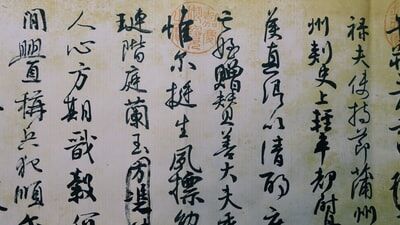 禄夫使持節蒲州
州刾史上軽車都尉
侯真卿以清酌庶
亡姪贈賛善大夫
惟尔挺生夙標幼
璉階庭蘭玉
人心方期戩穀何
間舋稱兵犯順